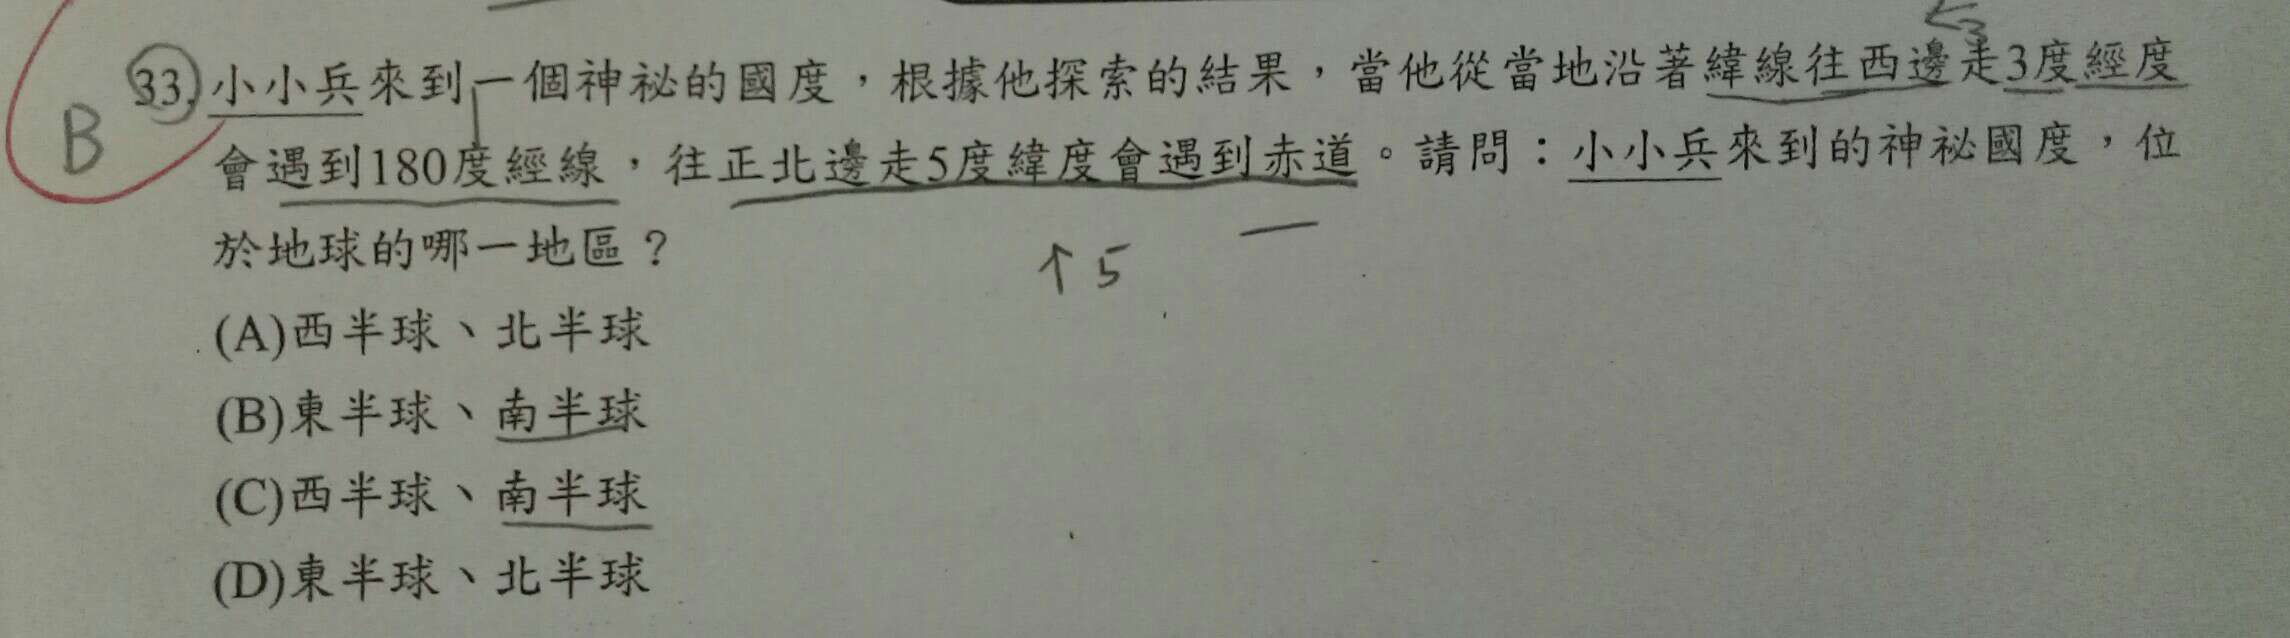 ←3
33.小小兵來到一個神祕的國度，根據他探索的結果，當他從當地沿著緯線往西邊走3度經度
B
會遇到180度經線，往正北邊走5度緯度會遇到赤道。請問：小小兵來到的神祕國度，位
於地球的哪一地區？
↑5
(A)西半球、北半球
(B)東半球、南半球
(C)西半球、南半球
(D)東半球、北半球